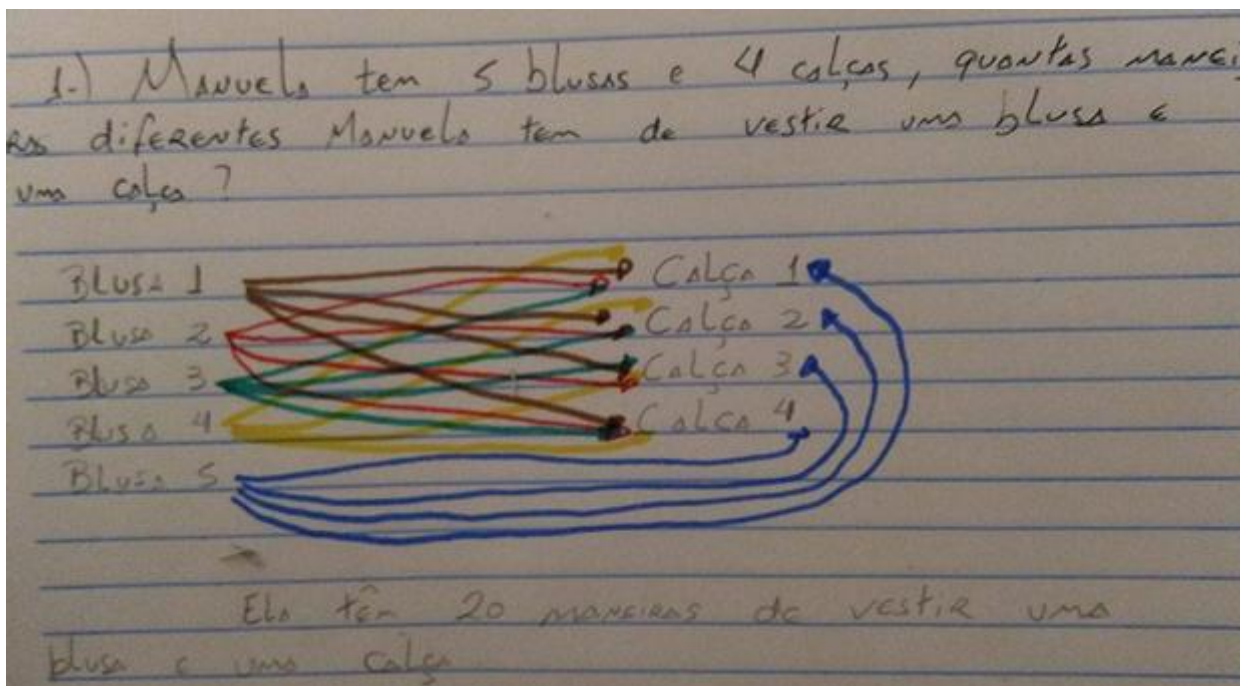 1-) Manuela tem 5 blusas e 4 calças, quantas manei
ras diferentes Manuela tem de vestir uma blusa e
uma calça?
Blusa 1 Calça 1
Blusa 2 Calça 2
Blusa 3 Calça 3
Blusa 4 Calça 4
Blusa 5
Ela têm 20 maneiras de vestir uma
blusa e uma calça